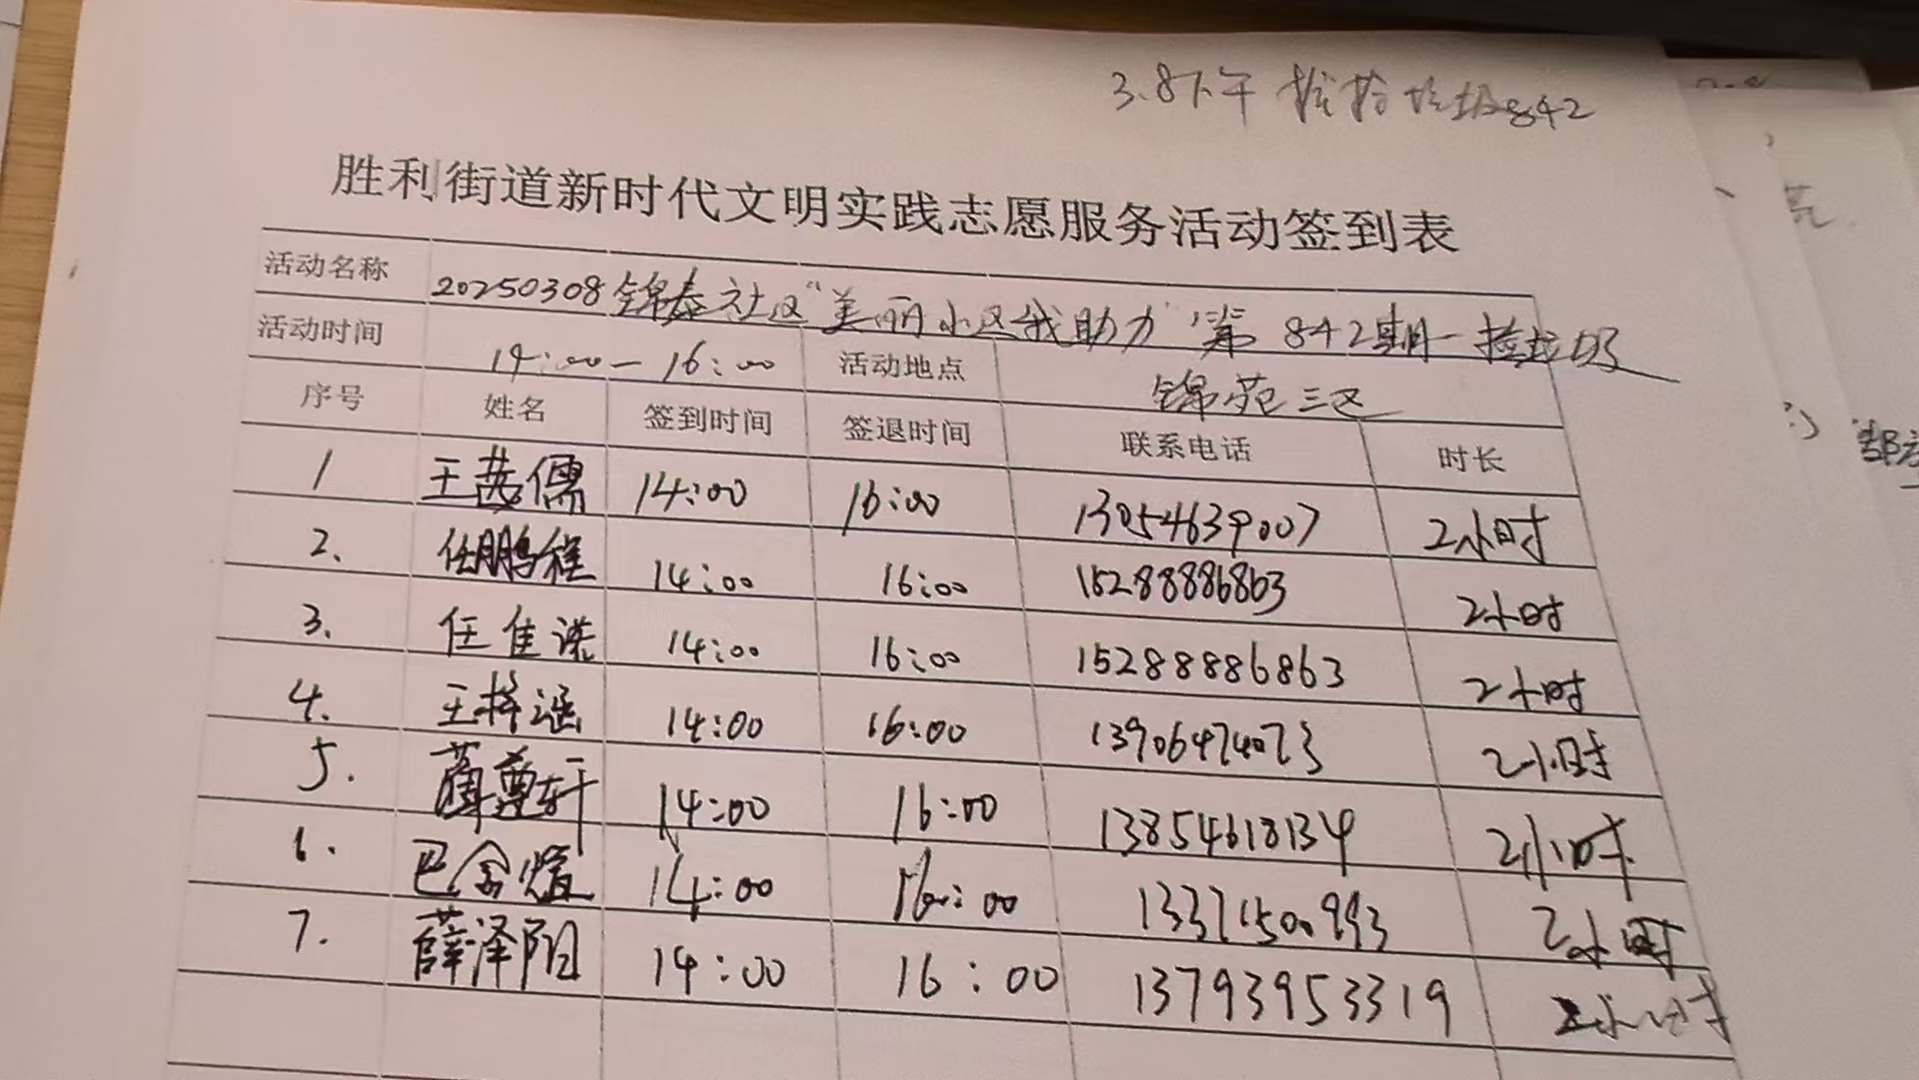 3.8下午 捡拾垃圾842
胜利街道新时代文明实践志愿服务活动签到表
活动名称 20250308锦泰社区“美丽小区我助力”第842期—捡垃圾
活动时间 14:00—16:00 活动地点 锦苑三区
序号 姓名 签到时间 签退时间 联系电话 时长
1 王茜儒 14:00 16:00 13054639007 2小时
2. 任鹏程 14:00 16:00 15288886863 2小时
3. 任佳诺 14:00 16:00 15288886863 2小时
4. 王梓涵 14:00 16:00 13906474073 2小时
5. 薛尊轩 14:00 16:00 13854618134 2小时
6. 巴金煊 14:00 16:00 13371500993 2小时
7. 薛泽阳 14:00 16:00 13793953319 2小时